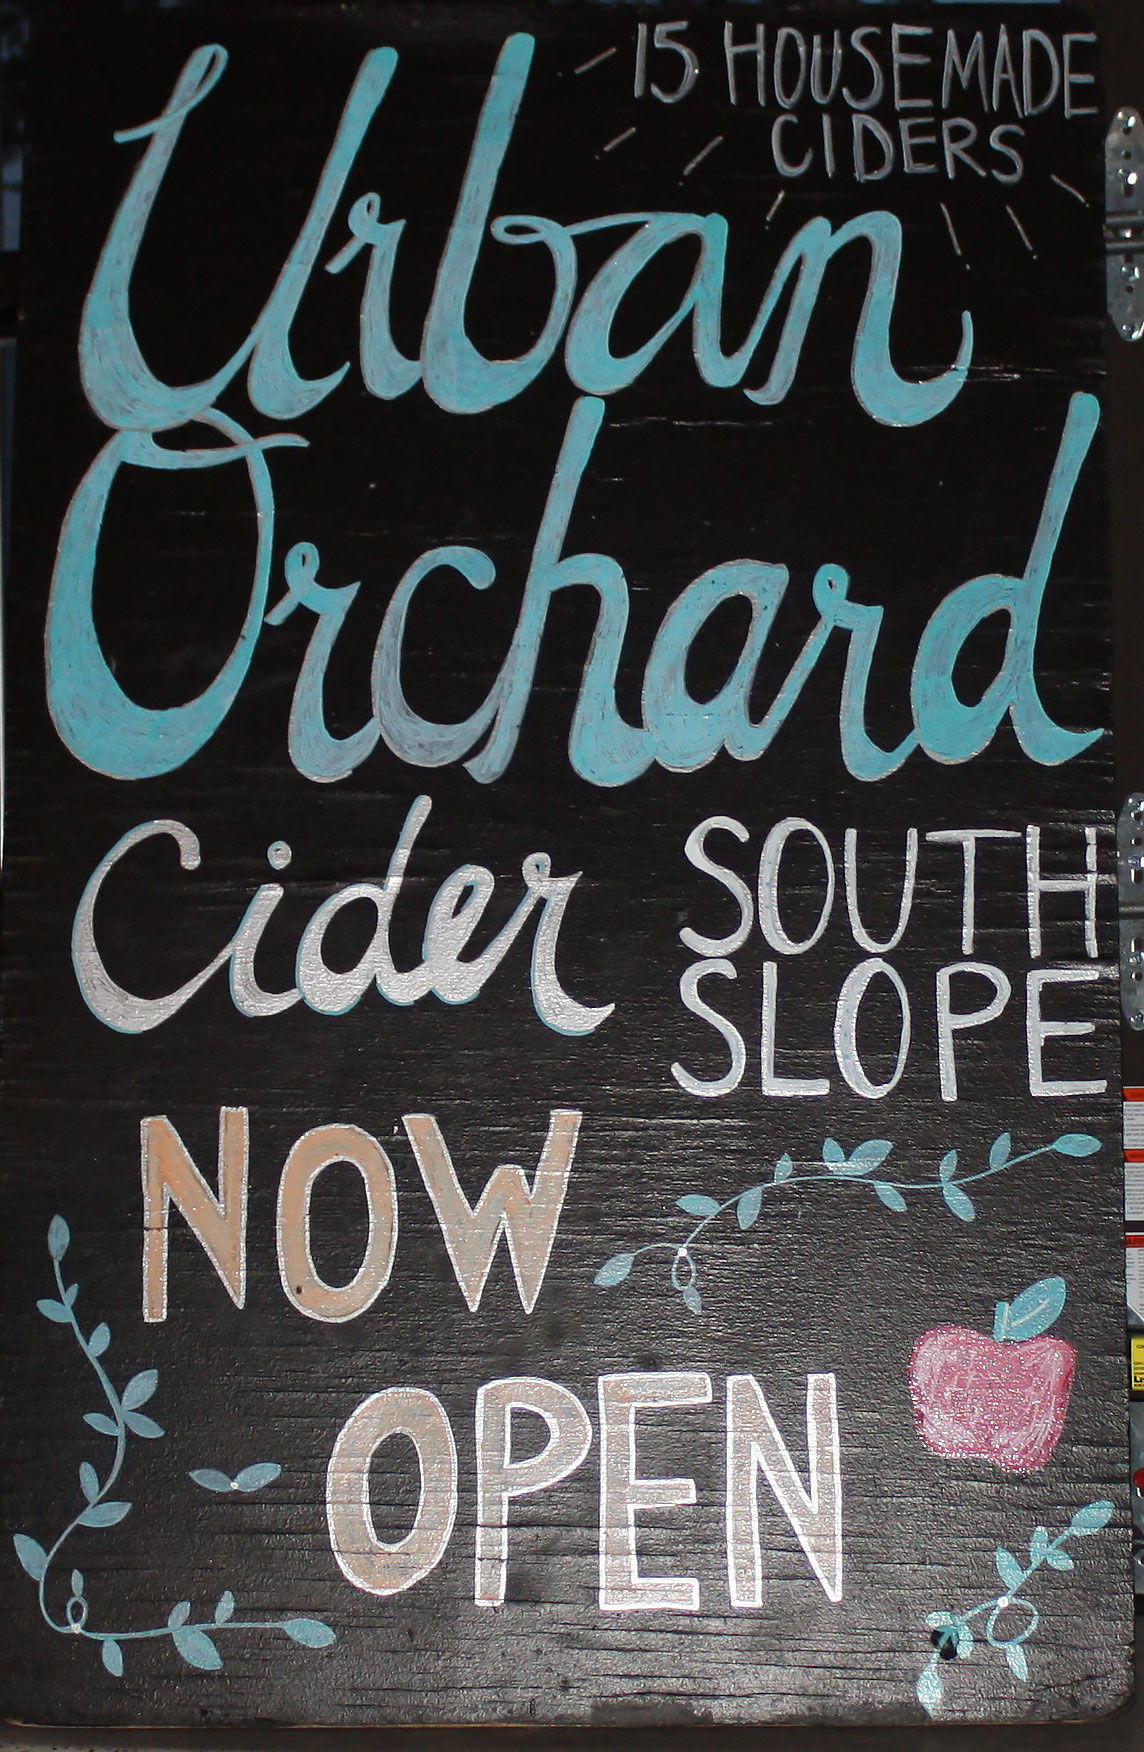 15 HOUSEMADE
CIDERS
Urban
Orchard
Cider
SOUTH
SLOPE
NOW
OPEN